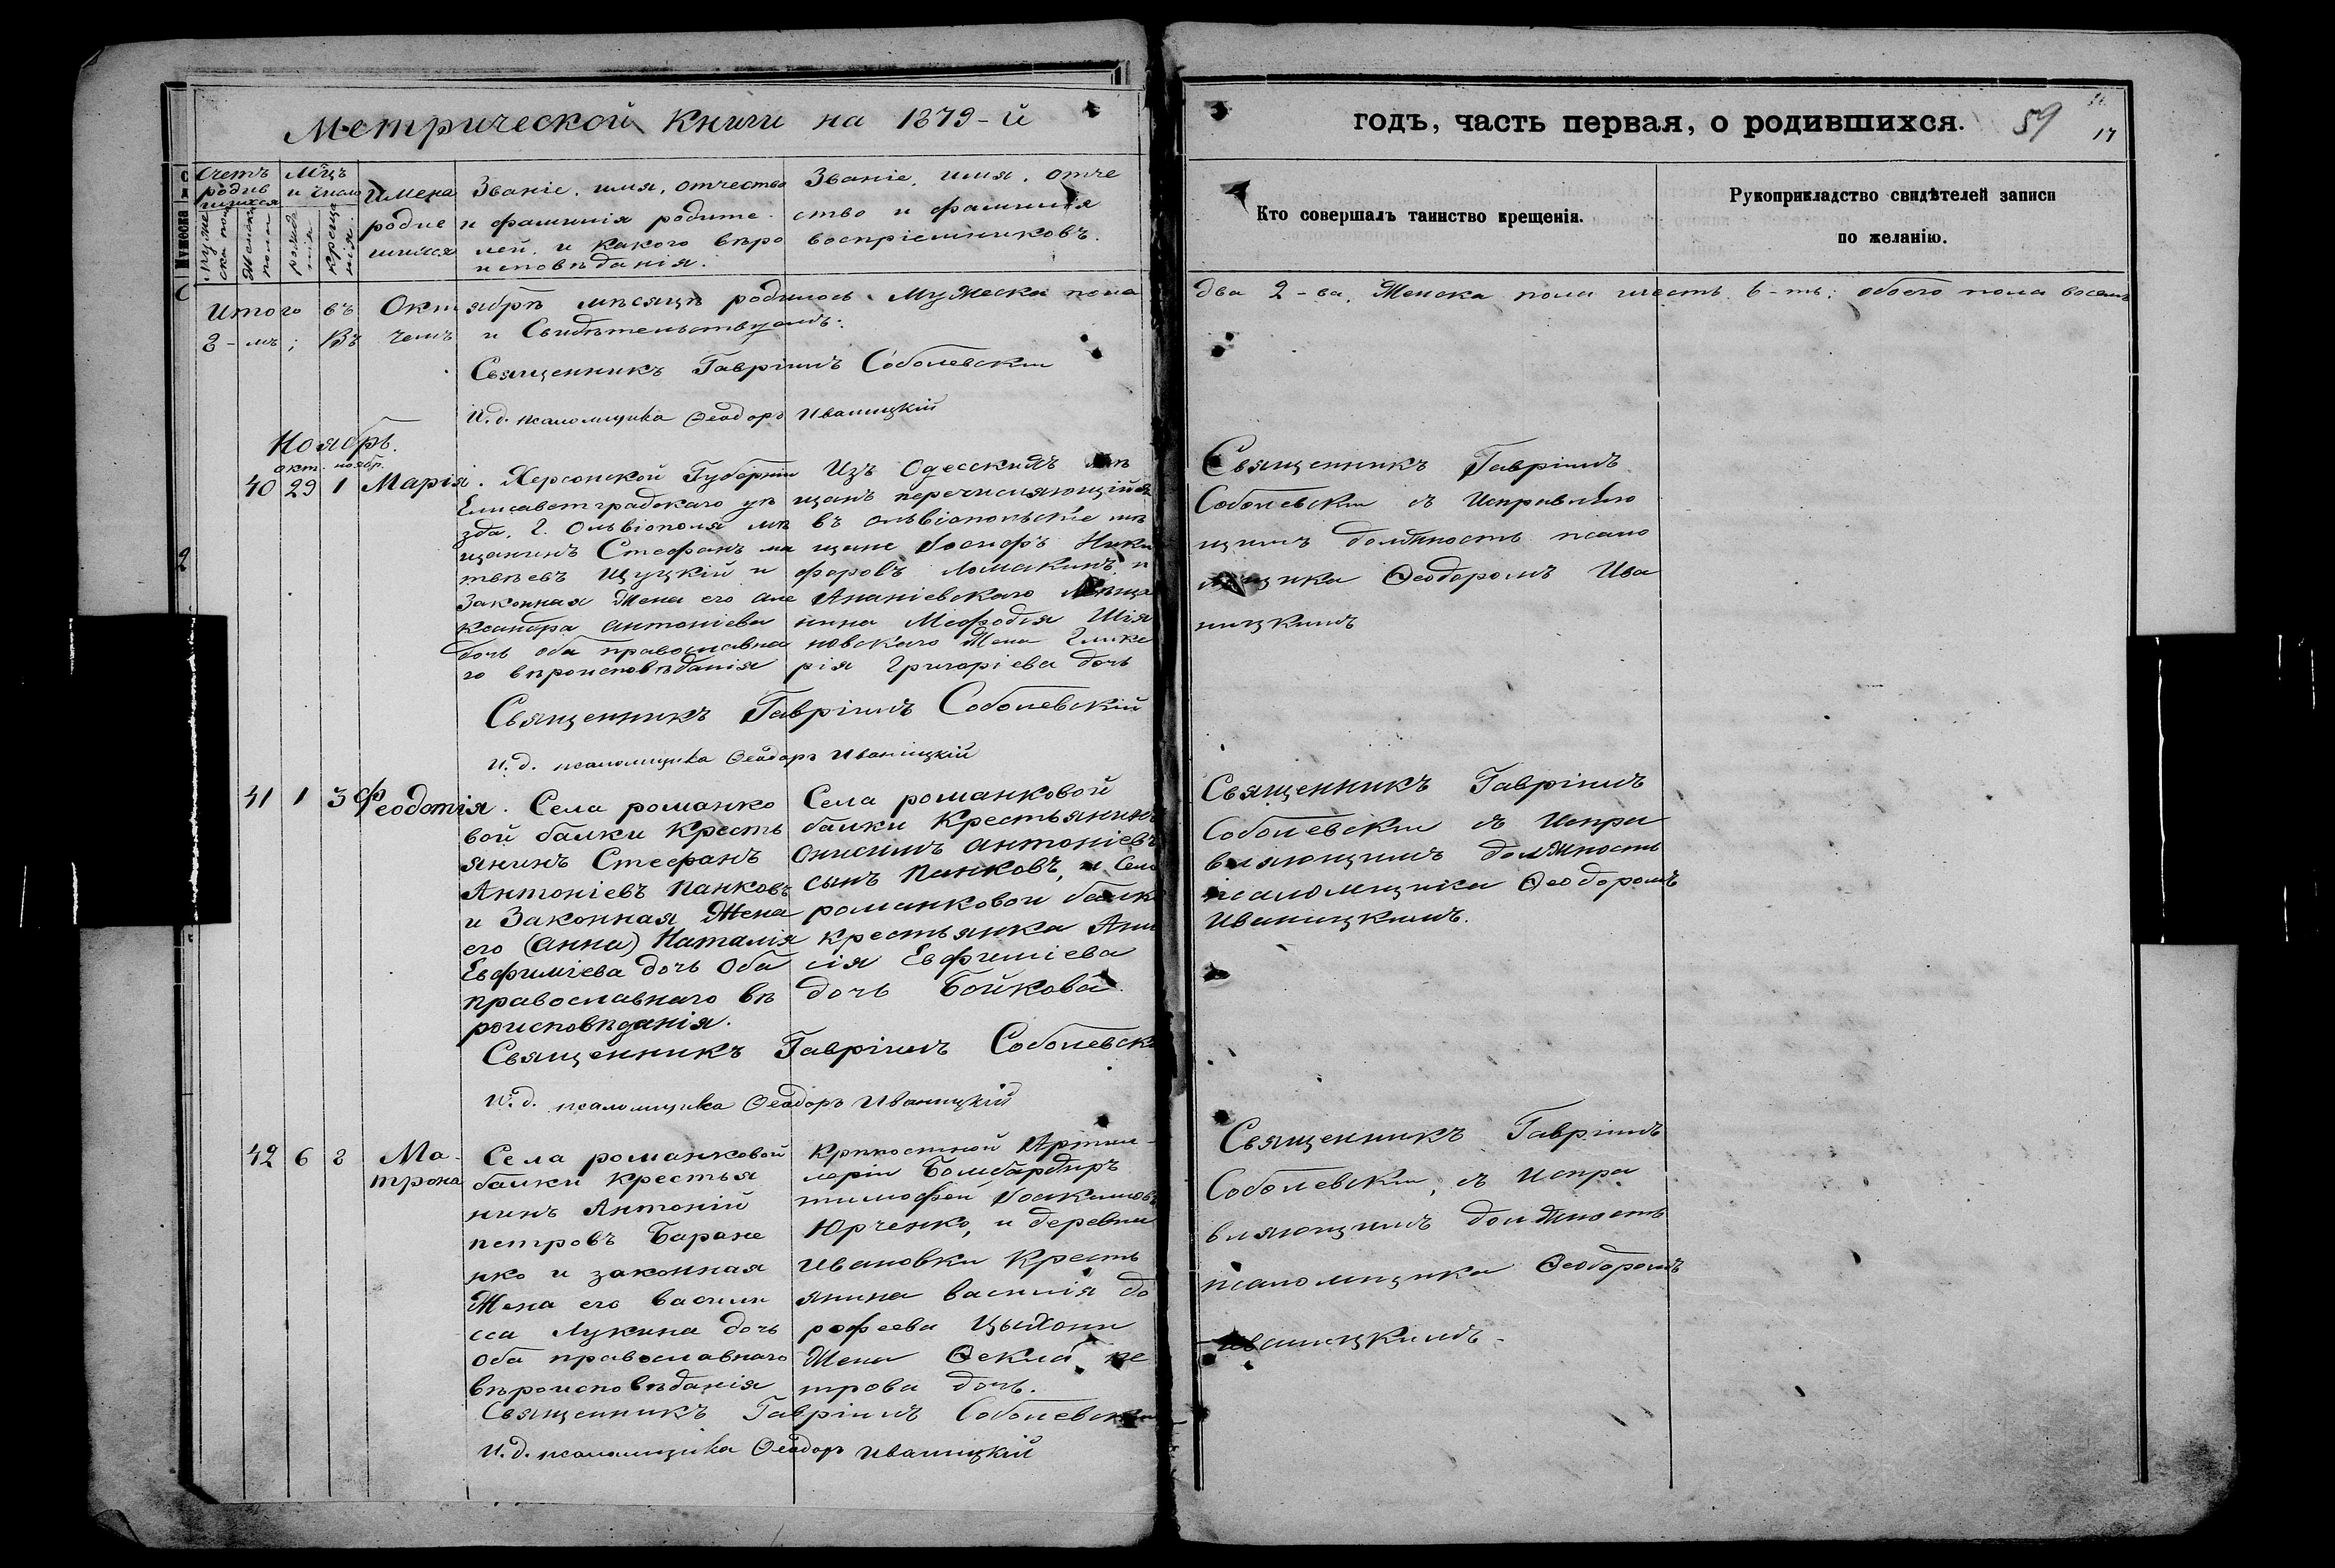 Метрической Книги на 1879-й
годъ, часть первая, о родившихся.
59
17
Счетъ родив шихся
Мужеска пола
Женска пола
Мцъ и число
рожде нія
креще нія
Имена родив шихся
Званіе, имя, отчество
и фамилія родите
лей, и какого вѣро
исповѣданія.
Званіе, имя, отче
ство и фамилія
воспріемниковъ.
Кто совершалъ таинство крещенія.
Рукоприкладство свидѣтелей записи
по желанію.
Итого въ Октябрѣ мѣсяцѣ родилось Мужеска пола
два 2-ва, Женска пола шесть 6-ть; обоего пола восемь
8-мь; Въ чемъ и Свидѣтельствуемъ:
Священникъ Гавріилъ Соболевскій
И. д. псаломщика Ѳеодоръ Иваницкій
Ноябрь.
окт. ноябр.
40 29 1 Марія.
Херсонской Губерніи
Елисаветградскаго уѣ
зда, Г. Ольвіополя мѣ
щанинъ Стефанъ Ма
твѣевъ Щуцкій и
Законная Жена его Але
ксандра Антоніева
дочь оба православна
го вѣроисповѣданія
Изъ Одесскихъ мѣ
щанъ перечисляющійся
въ ольвіопольскіе мѣ
щане Іосифъ Ники
форовъ Ломакинъ и
Ананіевскаго Мѣща
нина Меѳодія Шія
новскаго Жена Глике
рія Григоріева дочь
Священникъ Гавріилъ
Соболевскій съ Исправляю
щимъ должность псало
мщика Ѳеодоромъ Ива
ницкимъ
Священникъ Гавріилъ Соболевскій
И. д. псаломщика Ѳеодоръ Иваницкій
41 1 3 Феодотія.
Села романко
вой балки Кресть
янинъ Стефанъ
Антоніевъ Панковъ
и Законная Жена
его (Анна) Наталія
Евфиміева дочь Оба
православнаго вѣ
роисповѣданія.
Села романковой
балки Крестьянинъ
Онисимъ Антоніевъ
сынъ Панковъ, и Села
романковой балки
крестьянка Ани
сія Евфиміева
дочь Бойкова.
Священникъ Гавріилъ
Соболевскій съ Испра
вляющимъ должность
псаломщика Ѳеодоромъ
Иваницкимъ.
Священникъ Гавріилъ Соболевскій
И. д. псаломщика Ѳеодоръ Иваницкій
42 6 8 Ма-
трона
Села романковой
балки Крестья
нинъ Антоній
петровъ Баране
нко и законная
Жена его Васили
сса Лукина дочь
Оба православнаго
вѣроисповѣданія
Крѣпостной Артил-
леріи Бомбардиръ
тимофей Іоакимовъ
Юрченко, и деревни
Ивановки Кресть
янина Василія До
рофеева Цыхони
Жена Ѳекла Пе
трова дочь.
Священникъ Гавріилъ
Соболевскій, съ Испра
вляющимъ должность
псаломщика Ѳеодоромъ
Иваницкимъ.
Священникъ Гавріилъ Соболевскій
И. д. псаломщика Ѳеодоръ Иваницкій